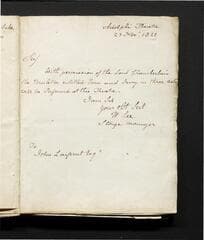 Adelphi Theatre
27 Nov. 1821
Sir
With permission of the Lord Chamberlain
the Burletta entitled Tom and Jerry in three acts,
will be Performed at this Theatre.
I am Sir
Your Obt Servt
W Lee
Stage manager
To
John Larpent Esqr